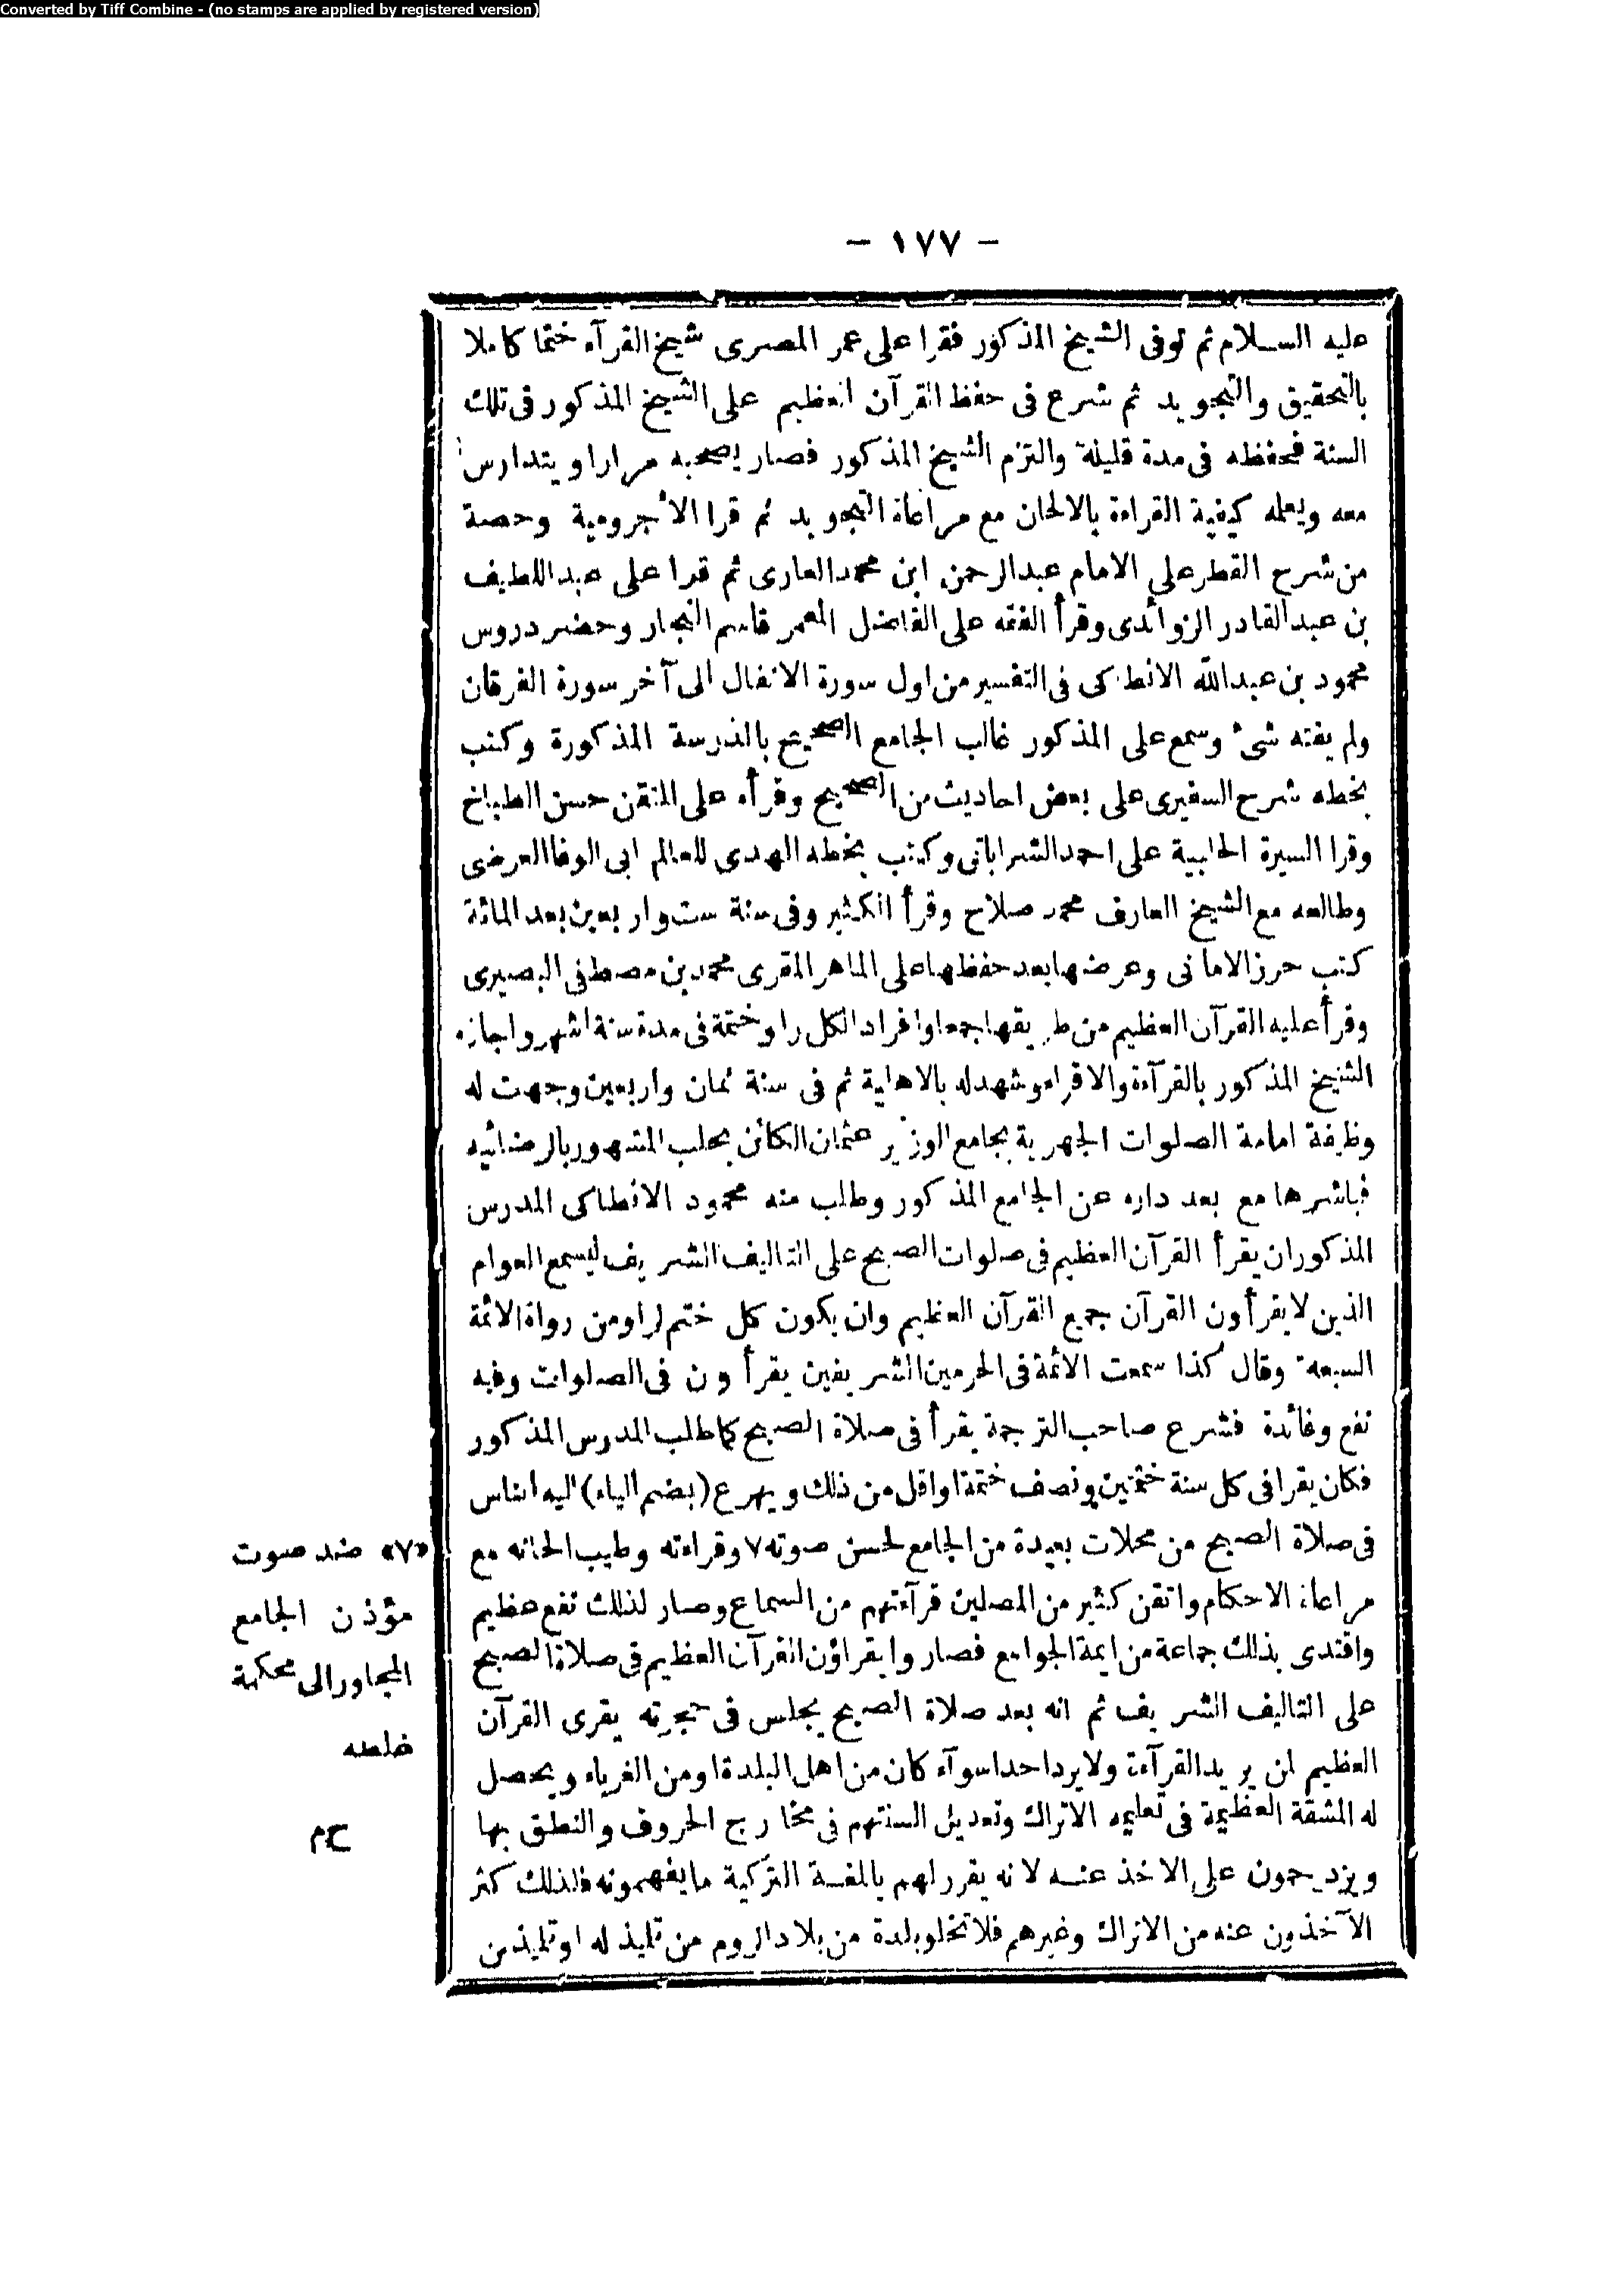 Converted by Tiff Combine - (no stamps are applied by registered version)
— ١٧٧ —
عليه السلام ثم توفى الشيخ المذكور فقرا على عمر المصرى شيخ القرآء ختما كاملا
بالتحقيق والتجويد ثم شرع فى حفظ القرآن العظيم على الشيخ المذكور فى تلك
السنة فحفظه فى مدة قليلة والتزم الشيخ المذكور فصار يصحبه مرارا ويتدارس
معه ويعلمه كيفية القراءة بالالحان مع مراعاة التجويد ثم قرا الأجرومية وحصة
من شرح القطر على الامام عبدالرحمن ابن محمد العارى ثم قرا على عبداللطيف
بن عبدالقادر الزوائدى وقرأ الفقه على الفاضل المعمر قاسم النجار وحضر دروس
محمود بن عبدالله الانطاكى فى التفسير من اول سورة الانفال الى آخر سورة الفرقان
ولم يفته شئ وسمع على المذكور غالب الجامع الصحيح بالمدرسة المذكورة وكتب
بخطه شرح السفيرى على بعض احاديث من الصحيح وقرأه على المتقن حسن الطباخ
وقرا السيرة الحلبية على احمد الشراباتى وكتب بخطه الهدى للعالم ابى الوفا العرضى
وطالعه مع الشيخ العارف محمد صلاح وقرأ الكثير وفى سنة ست واربعين بعد المائة
كتب حرز الامانى وعرضها بعد حفظها على الماهر المقرى محمد بن مصطفى البصيرى
وقرأ عليه القرآن العظيم من طريقها جمعا وافراد الكل راو ختمة فى مدة ستة اشهر واجازه
الشيخ المذكور بالقرآءة والاقراء وشهد له بالاهلية ثم فى سنة ثمان واربعين وجهت له
وظيفة امامة الصلوات الجهرية بجامع الوزير عثمان الكائن بحلب المشهور بالرضائيه
فباشرها مع بعد داره عن الجامع المذكور وطلب منه محمود الانطاكى المدرس
المذكور ان يقرأ القرآن العظيم فى صلوات الصبح على التاليف الشريف ليسمع العوام
الذين لا يقرأون القرآن جميع القرآن العظيم وان يكون كل ختم لراو من رواة الائمة
السبعة وقال كذا سمعت الائمة فى الحرمين الشريفين يقرأون فى الصلوات وفيه
نفع وفائدة فشرع صاحب الترجمة يقرأ فى صلاة الصبح كما طلب المدرس المذكور
فكان يقرا فى كل سنة ختمتين ونصف ختمة او اقل من ذلك ويهرع (بضم الياء) اليه الناس
فى صلاة الصبح من محلات بعيدة من الجامع لحسن صوته ٧ وقراءته وطيب الحانه مع
مراعاة الاحكام واتقن كثير من المصلين قرآءتهم من السماع وصار لذلك نفع عظيم
واقتدى بذلك جماعة من ايمة الجوامع فصاروا يقراؤن القرآن العظيم فى صلاة الصبح
على التاليف الشريف ثم انه بعد صلاة الصبح يجلس فى حجرته يقرى القرآن
العظيم لمن يريد القرآءة ولا يرد احدا سوآء كان من اهل البلدة او من الغرباء ويحصل
له المشقة العظيمة فى تعليمه الاتراك وتعديل السنتهم فى مخارج الحروف والنطق بها
ويزدحمون على الاخذ عنه لانه يقرر لهم باللغة التركية ما يفهمونه فلذلك كثر
الآخذون عنه من الاتراك وغيرهم فلا تخلو بلدة من بلاد الروم من تلميذ له او تلميذ من
«٧» ضد صوت
مؤذن الجامع
المجاور الى محكمة
غلطه
ح م